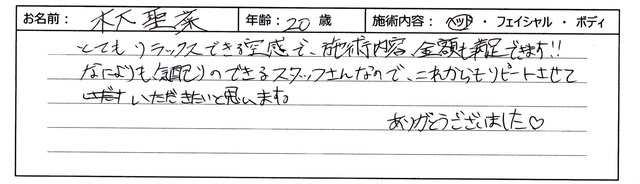 お名前： 木下聖菜 年齢：20歳 施術内容：ヘッド・フェイシャル・ボディ
とてもリラックスできる空感で、施術内容、金額も満足できます!!
なによりも気配りのできるスタッフさんなので、これからもリピートさせて
いただきたいと思います。
ありがとうございました♡